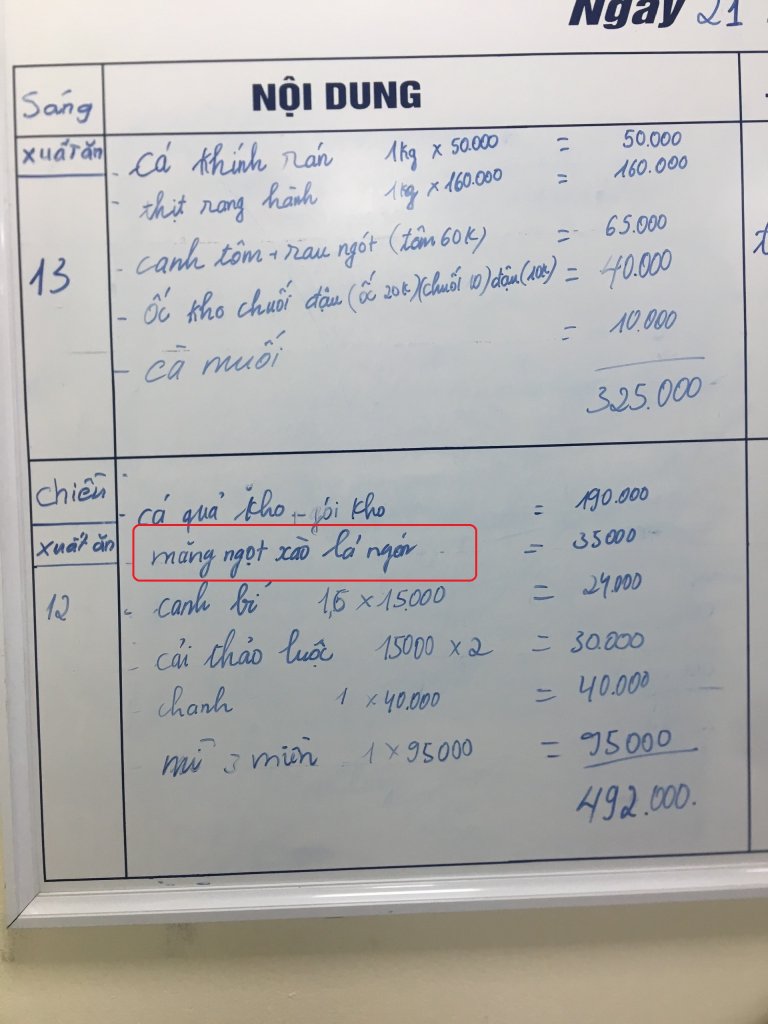 Ngày 21
Sáng
NỘI DUNG
xuất ăn
13
- cá thính rán 1kg x 50.000 = 50.000
- thịt rang hành 1kg x 160.000 = 160.000
- canh tôm + rau ngót (tôm 60k) = 65.000
- ốc kho chuối đậu (ốc 20k)(chuối 10) đậu (10k) = 40.000
- cà muối = 10.000
325.000
Chiều
xuất ăn
12
- cá quả kho + gói kho = 190.000
- măng ngọt xào lá = 35000
- canh bí 1,6 x 15.000 = 24.000
- cải thảo luộc 15000 x 2 = 30.000
- chanh 1 x 40.000 = 40.000
- mì 3 miền 1 x 95000 = 95000
492.000.